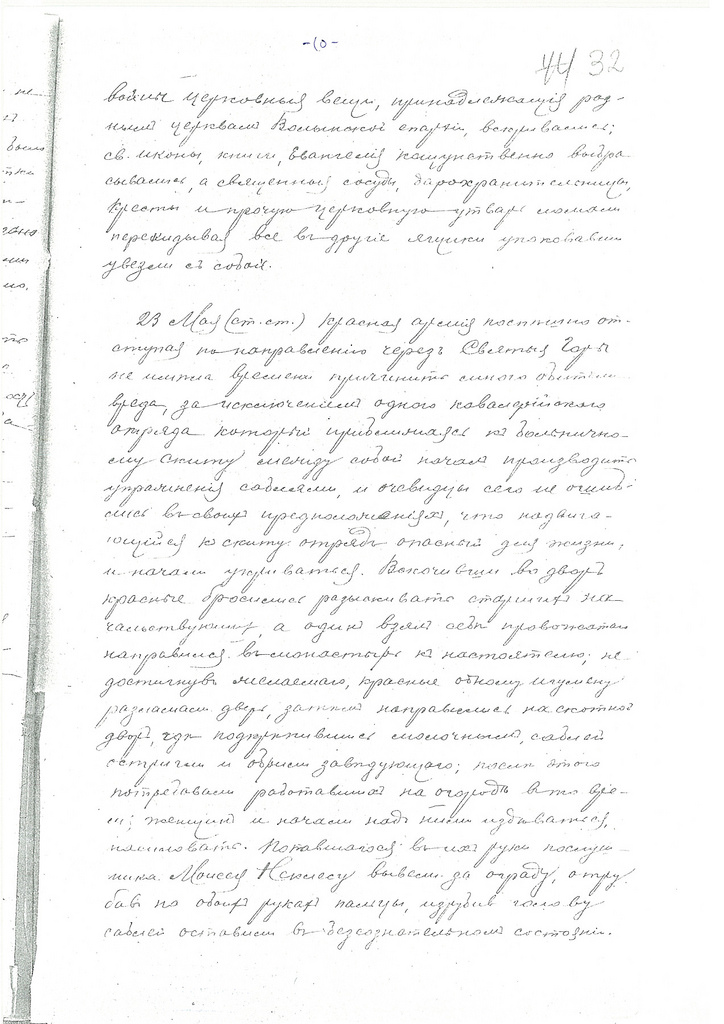 -10-
44 32
войны церковныя вещи, принадлежащія раз-
нымъ церквамъ Волынской епархіи, вскрывались;
св. иконы, книги, Евангелія кощунственно выбра
сывались, а священныя сосуды, дарохранительницы,
кресты и прочую церковную утварь ломали
перекидывая все въ другіе ящики упаковавши
увезли съ собой.
23 Мая (ст. ст.) Красная армія поспѣшно от-
ступая по направленію черезъ Святыя Горы
не имѣла времени причинить много обители
вреда, за исключеніемъ одного кавалерійскаго
отряда который приближаясь къ больнично-
му скиту между собой началъ производить
упражненія саблями, и очевидцы сего не ошиб-
лись въ своихъ предположеніяхъ, что надвига-
ющійся къ скиту отрядъ опасный для жизни,
и начали укрываться. Вскочивши во дворъ
красные бросились разыскивать старшихъ на-
чальствующихъ, а одинъ взялъ себѣ провожатаго
направился въ монастырь къ настоятелю; не
достигнувъ желаемаго, красные одному игумену
разломали дверь, затѣмъ направились на скотной
дворъ, гдѣ подкрѣпившись молочнымъ, саблей
остригли и обрили завѣдующаго; послѣ этого
потребовали работавшихъ на огородѣ въ то вре-
мя женщинъ и начали надъ ними издѣваться,
насиловать. Попавшагося въ ихъ руки послуш-
ника Моисея вывели за ограду, отру
бивъ на обоихъ рукахъ пальцы, изрубивъ голову
саблей оставили въ безсознательномъ состояніи.
не
было